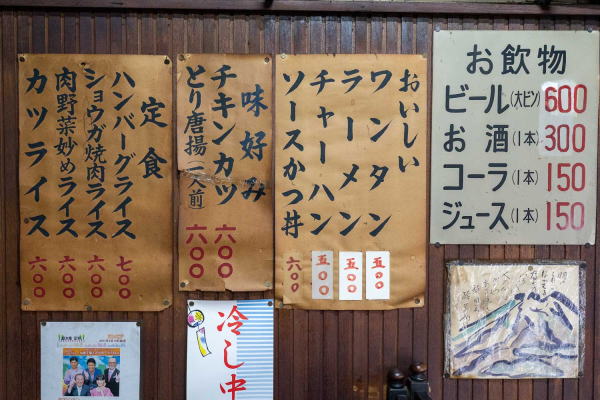 お飲物
ビール(大ビン)600
お酒(1本)300
コーラ(1本)150
ジュース(1本)150
おいしい
ワンタン 五〇〇
ラーメン 五〇〇
チャーハン 五〇〇
ソースかつ丼 六〇〇
味好み
チキンカツ 六〇〇
とり唐揚(一人前) 六〇〇
定食
ハンバーグライス 七〇〇
ショウガ焼肉ライス 六〇〇
肉野菜妙めライス 六〇〇
カツライス 六〇〇
冷し中